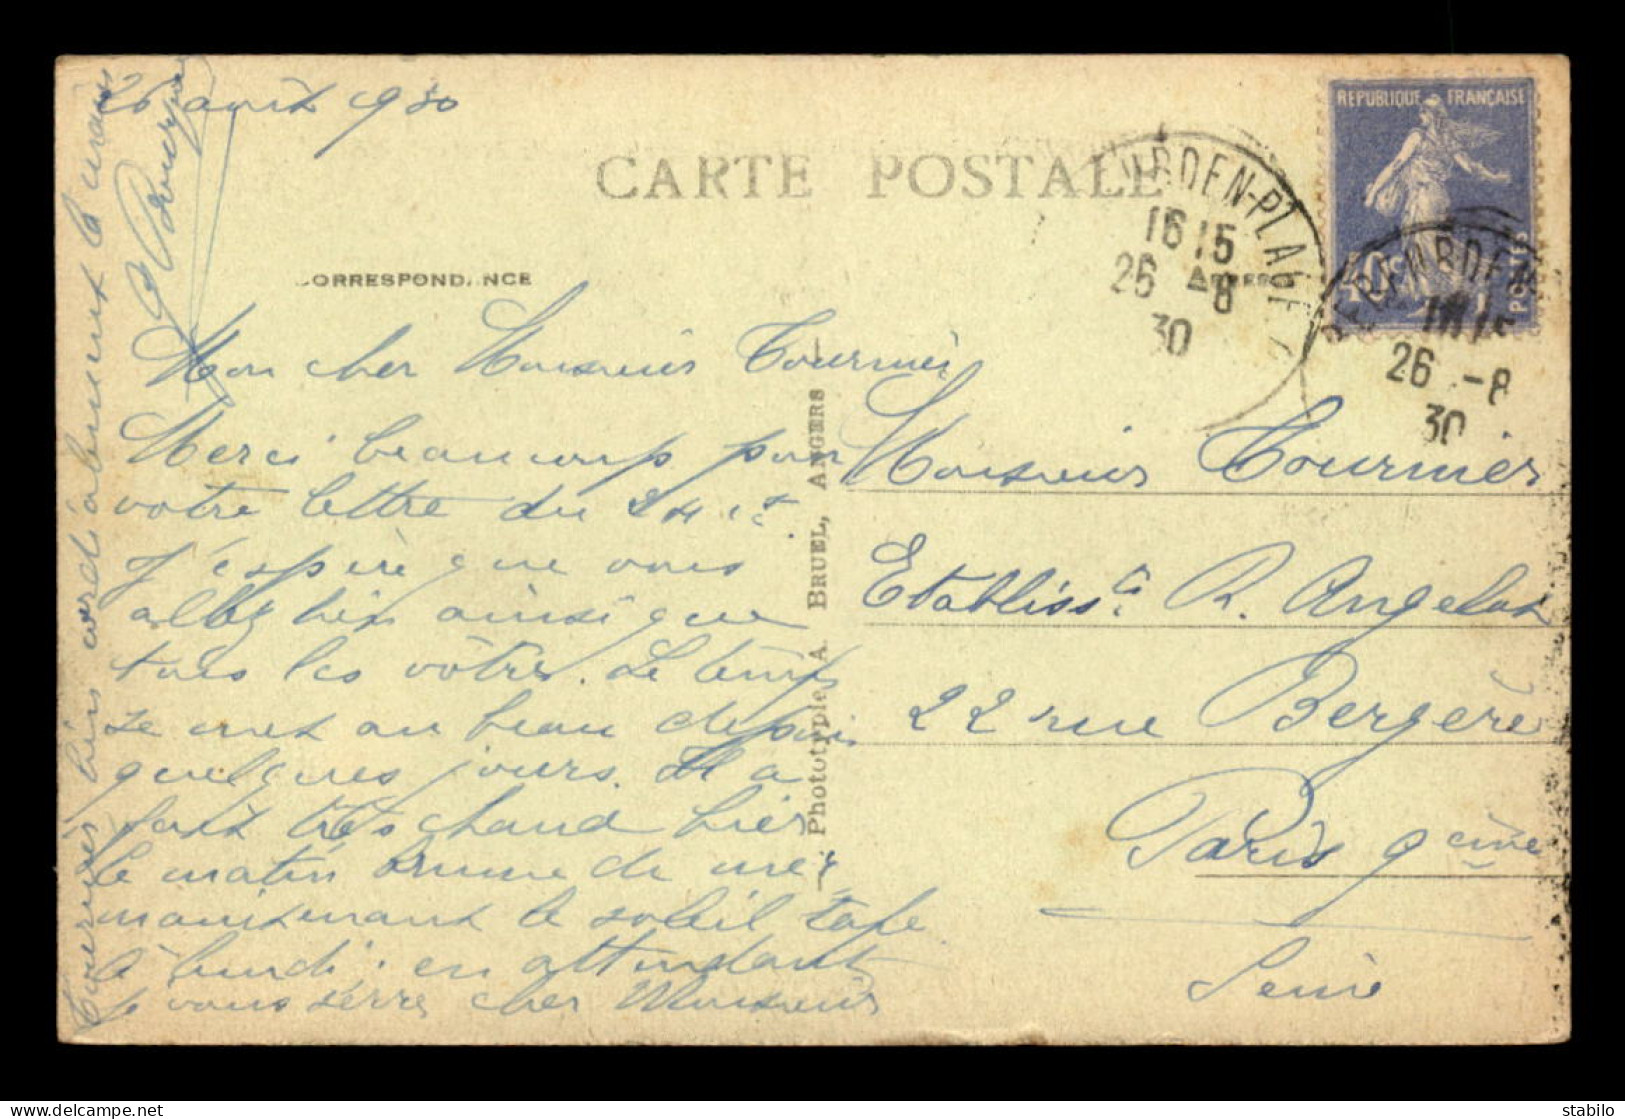 26 août 1930
CARTE POSTALE
RÉPUBLIQUE FRANÇAISE
POSTES
40c
16 15
26 -8
30
26 -8
30
CORRESPONDANCE
ADRESSE
Mon cher Monsieur Tournier
Merci beaucoup pour
votre lettre du 24 ct.
J'espère que vous
allez bien ainsi que
tous les vôtres. Le temps
se met au beau depuis
quelques jours. Il a
fait très chaud hier
le matin brume de mer
maintenant le soleil tape
à lundi. en attendant
je vous serre cher Monsieur
Tournier bien cordialement la main
Phototypie A. BRUEL, ANGERS
Monsieur Tournier
Etablissts R.
22 rue Bergère
Paris 9ème
Seine
stabilo | Delcampe.net